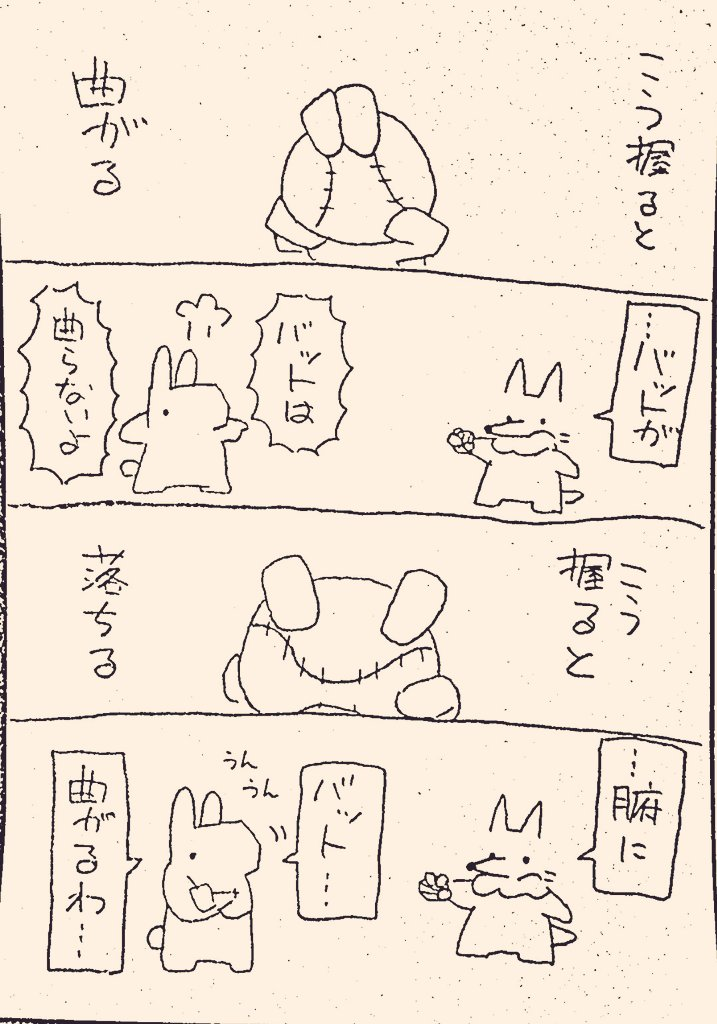 こう握ると
曲がる
…バットが
バットは
曲らないよ
こう
握ると
落ちる
…腑に
バット…
うん
うん
曲がるわ…